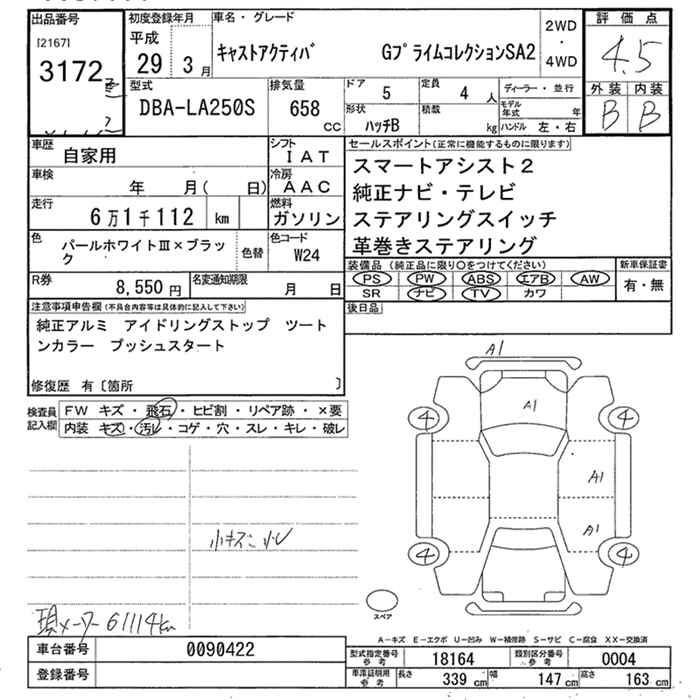 出品番号
[2167]
3172
初度登録年月
平成
29 3月
車名・グレード
キャストアクティバ GプライムコレクションSA2
2WD
・
4WD
評価点
4.5
外装 内装
B B
型式
DBA-LA250S
排気量
658
cc
ドア 5
定員 4 人
形状
ハッチB
積載
kg
ディーラー・並行
モデル年式 年
ハンドル 左・右
車歴 自家用
シフト
IAT
車検 年 月( 日)
冷房
AAC
走行 6万1千112 km
燃料
ガソリン
色 パールホワイトⅢ×ブラック
色替
色コード
W24
R券 8,550円
名変通知期限 月 日
セールスポイント(正常に機能するものに限ります)
スマートアシスト2
純正ナビ・テレビ
ステアリングスイッチ
革巻きステアリング
装備品(純正品に限り○をつけてください)
PS PW ABS エアB AW
SR ナビ TV カワ
新車保証書
有・無
後日品
注意事項申告欄(不具合内容等は具体的に記入して下さい)
純正アルミ アイドリングストップ ツート
ンカラー プッシュスタート
修復歴 有〔箇所 〕
検査員記入欄
FW キズ・飛石・ヒビ割・リペア跡・×要
内装 キズ・汚レ・コゲ・穴・スレ・キレ・破レ
A1
A1
4 4
A1
A1
4 4
小キズ 小U
スペア
現メーター 61114km
A-キズ E-エクボ U-凹み W-補修跡 S-サビ C-腐食 XX-交換済
車台番号 0090422
登録番号
型式指定番号参考 18164
類別区分番号参考 0004
車庫証明用参考 長さ 339cm 幅 147cm 高さ 163cm